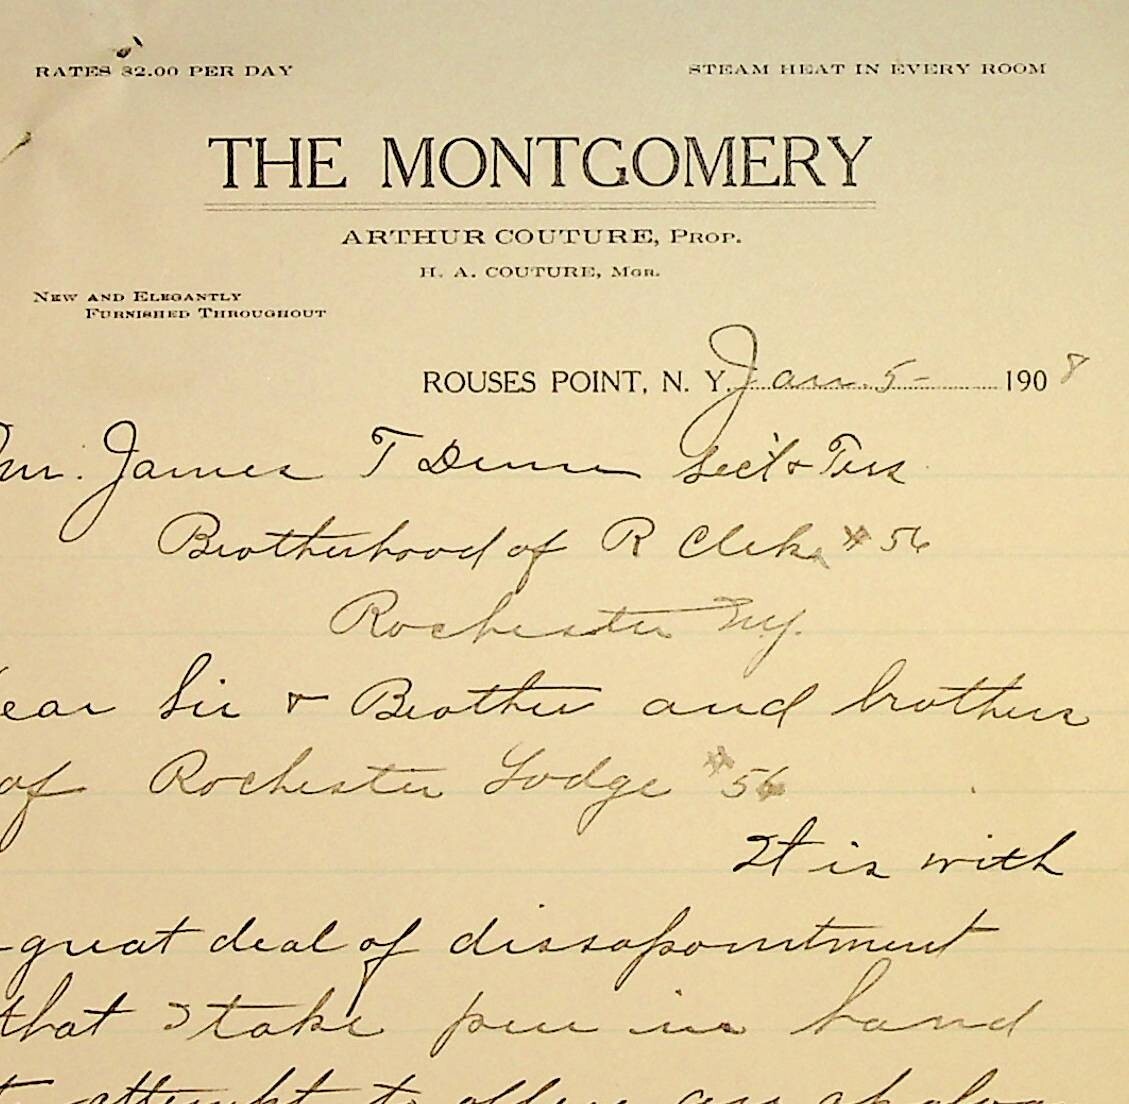 RATES $2.00 PER DAY
STEAM HEAT IN EVERY ROOM
THE MONTGOMERY
ARTHUR COUTURE, PROP.
H. A. COUTURE, MGR.
NEW AND ELEGANTLY
FURNISHED THROUGHOUT
ROUSES POINT, N. Y. Jan. 5- 1908
Mr. James T Dunn Sect & Tres
Brotherhood of R Clerks #56
Rochester N.Y.
Dear Sir & Brother and brothers
of Rochester Lodge #56
It is with
great deal of dissapointment
that I take pen in hand
attempt to offer an apolog